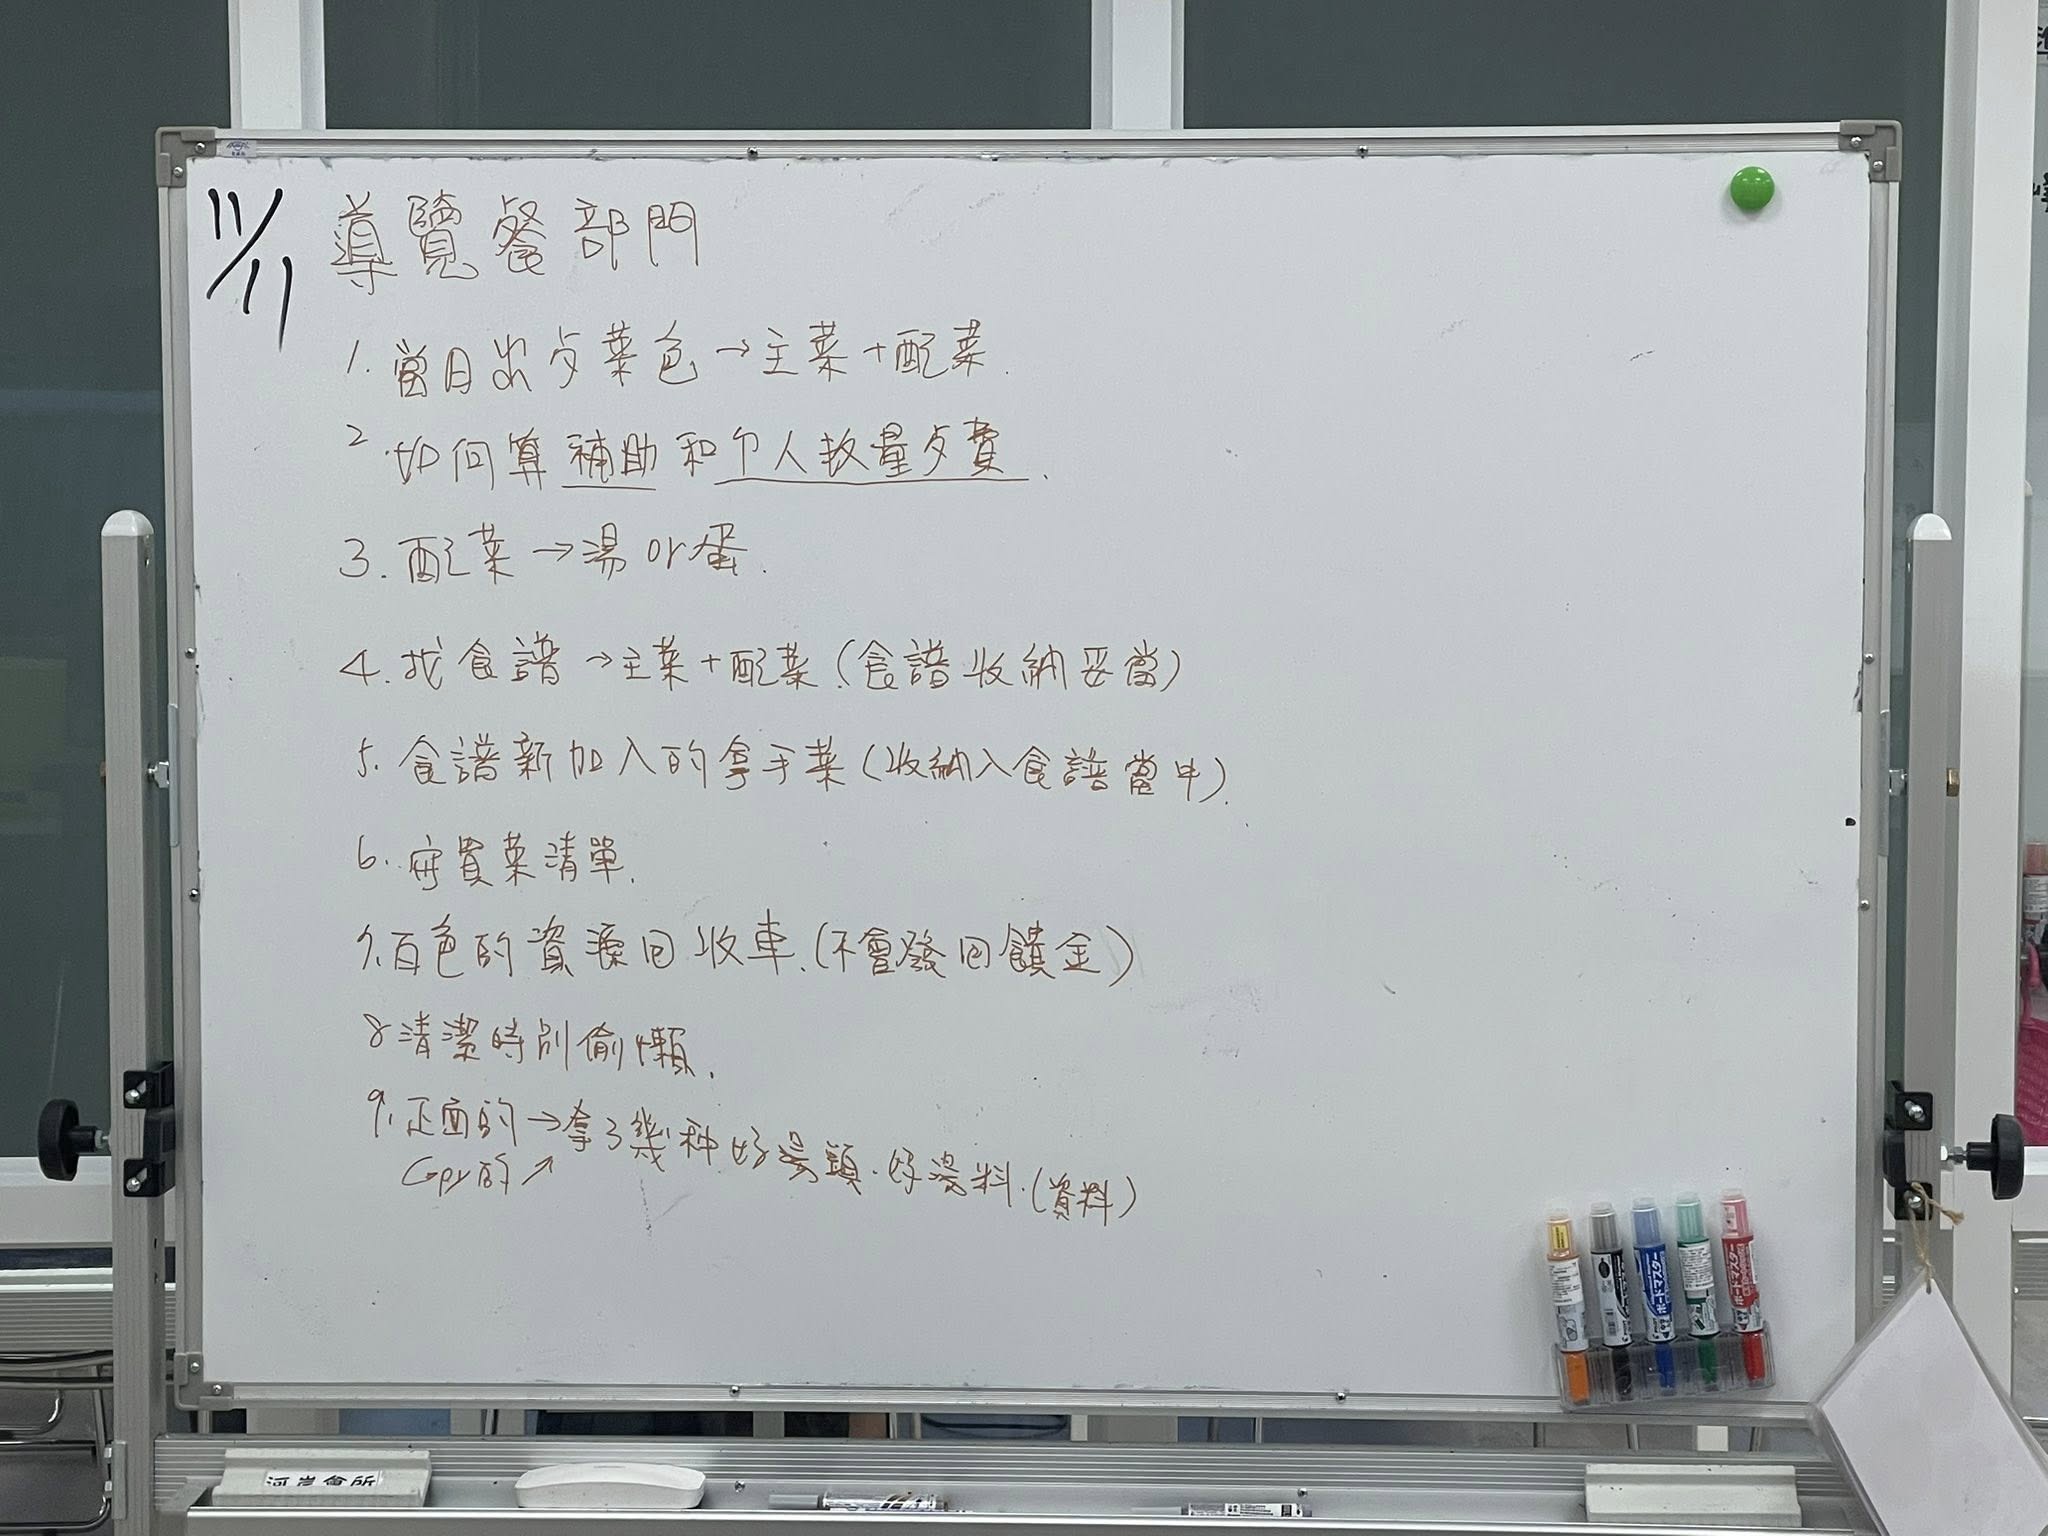 11/11 導覽餐部門
1. 當日出歺菜色→主菜+配菜.
2. 如何算補助和个人数量歺費.
3. 配菜→湯or蛋.
4. 找食譜→主菜+配菜.(食譜收納妥當)
5. 食譜新加入的拿手菜(收納入食譜當中).
6. 買菜清單.
7. 百色的資源回收車.(不會發回饋金)
8 清潔時別偷懶.
9. 正面的→拿了幾种好湯頭.好湯料.(資料)
的↗
河岸會所
ボードマスター
ボードマスター